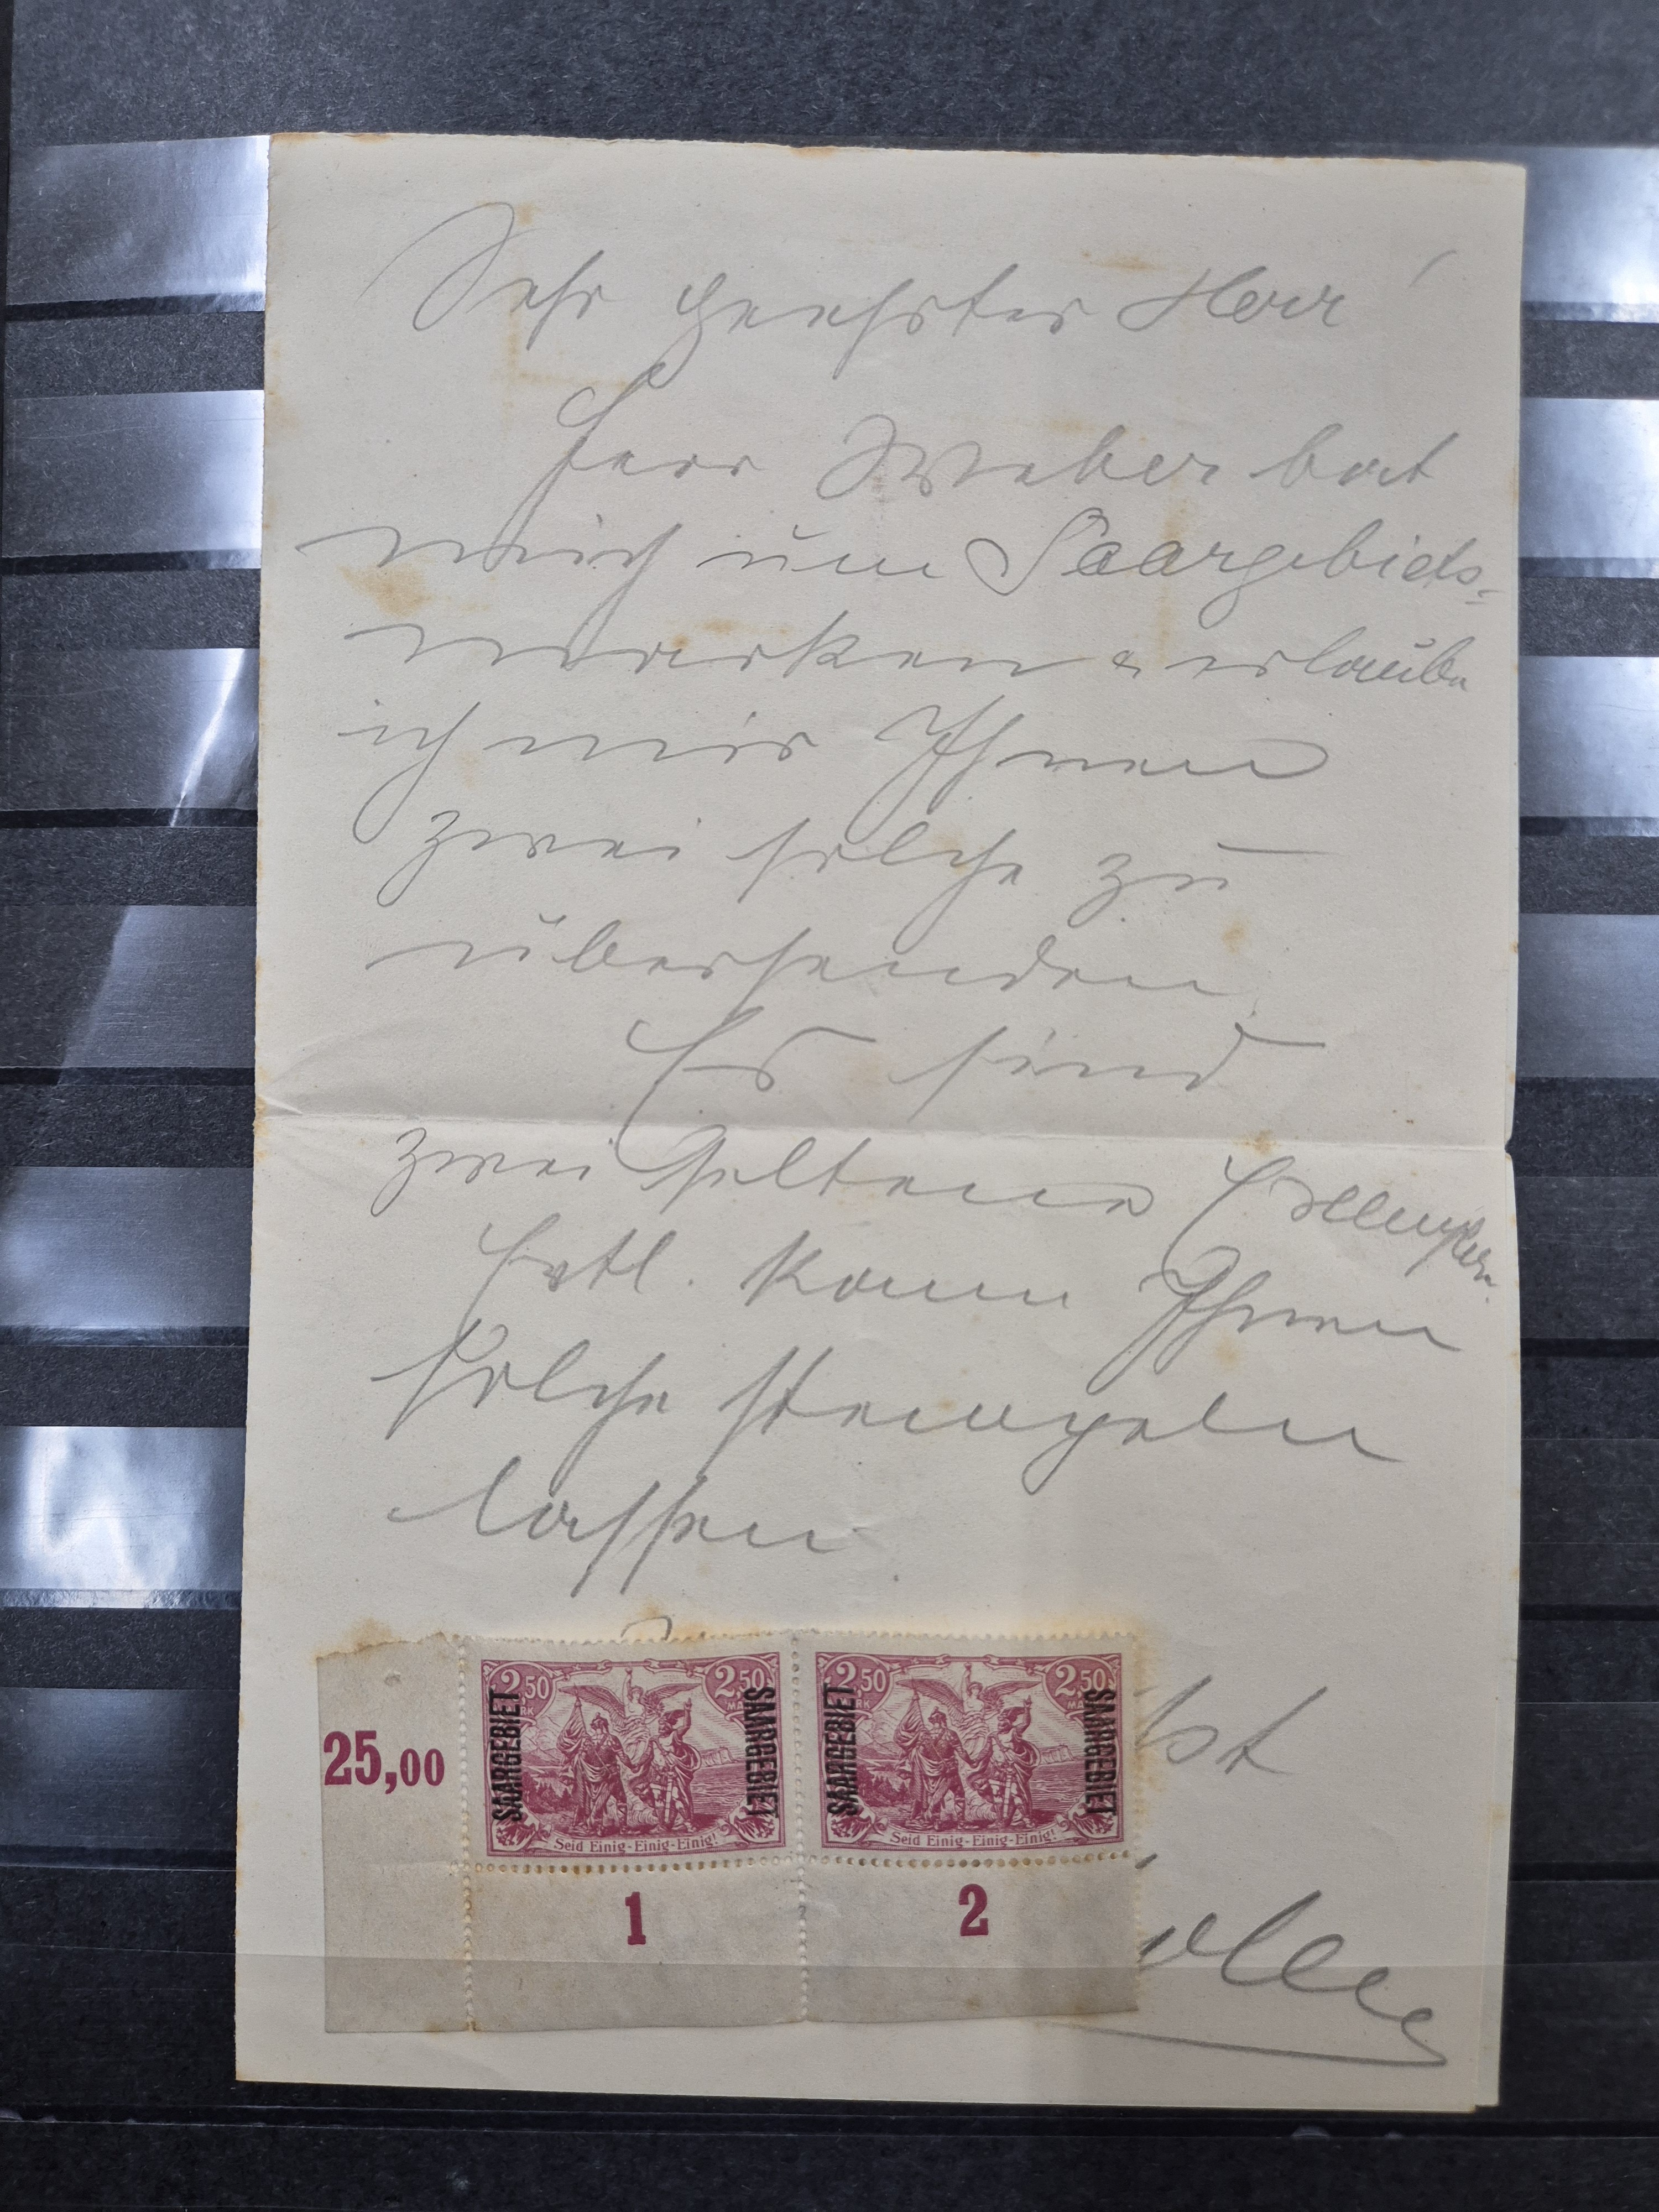 Sehr geehrter Herr!
Herr Weber bat
mich um Saargebiets-
marken & erlaube
ich mir Ihnen
zwei solche zu
übersenden.
Es sind
zwei seltene Exemplare.
Evtl. kann Ihnen
solche stempeln
lassen.
2,50 2,50 2,50 2,50
SAARGEBIET SAARGEBIET SAARGEBIET SAARGEBIET
25,00
Seid Einig-Einig-Einig! Seid Einig-Einig-Einig!
1 2